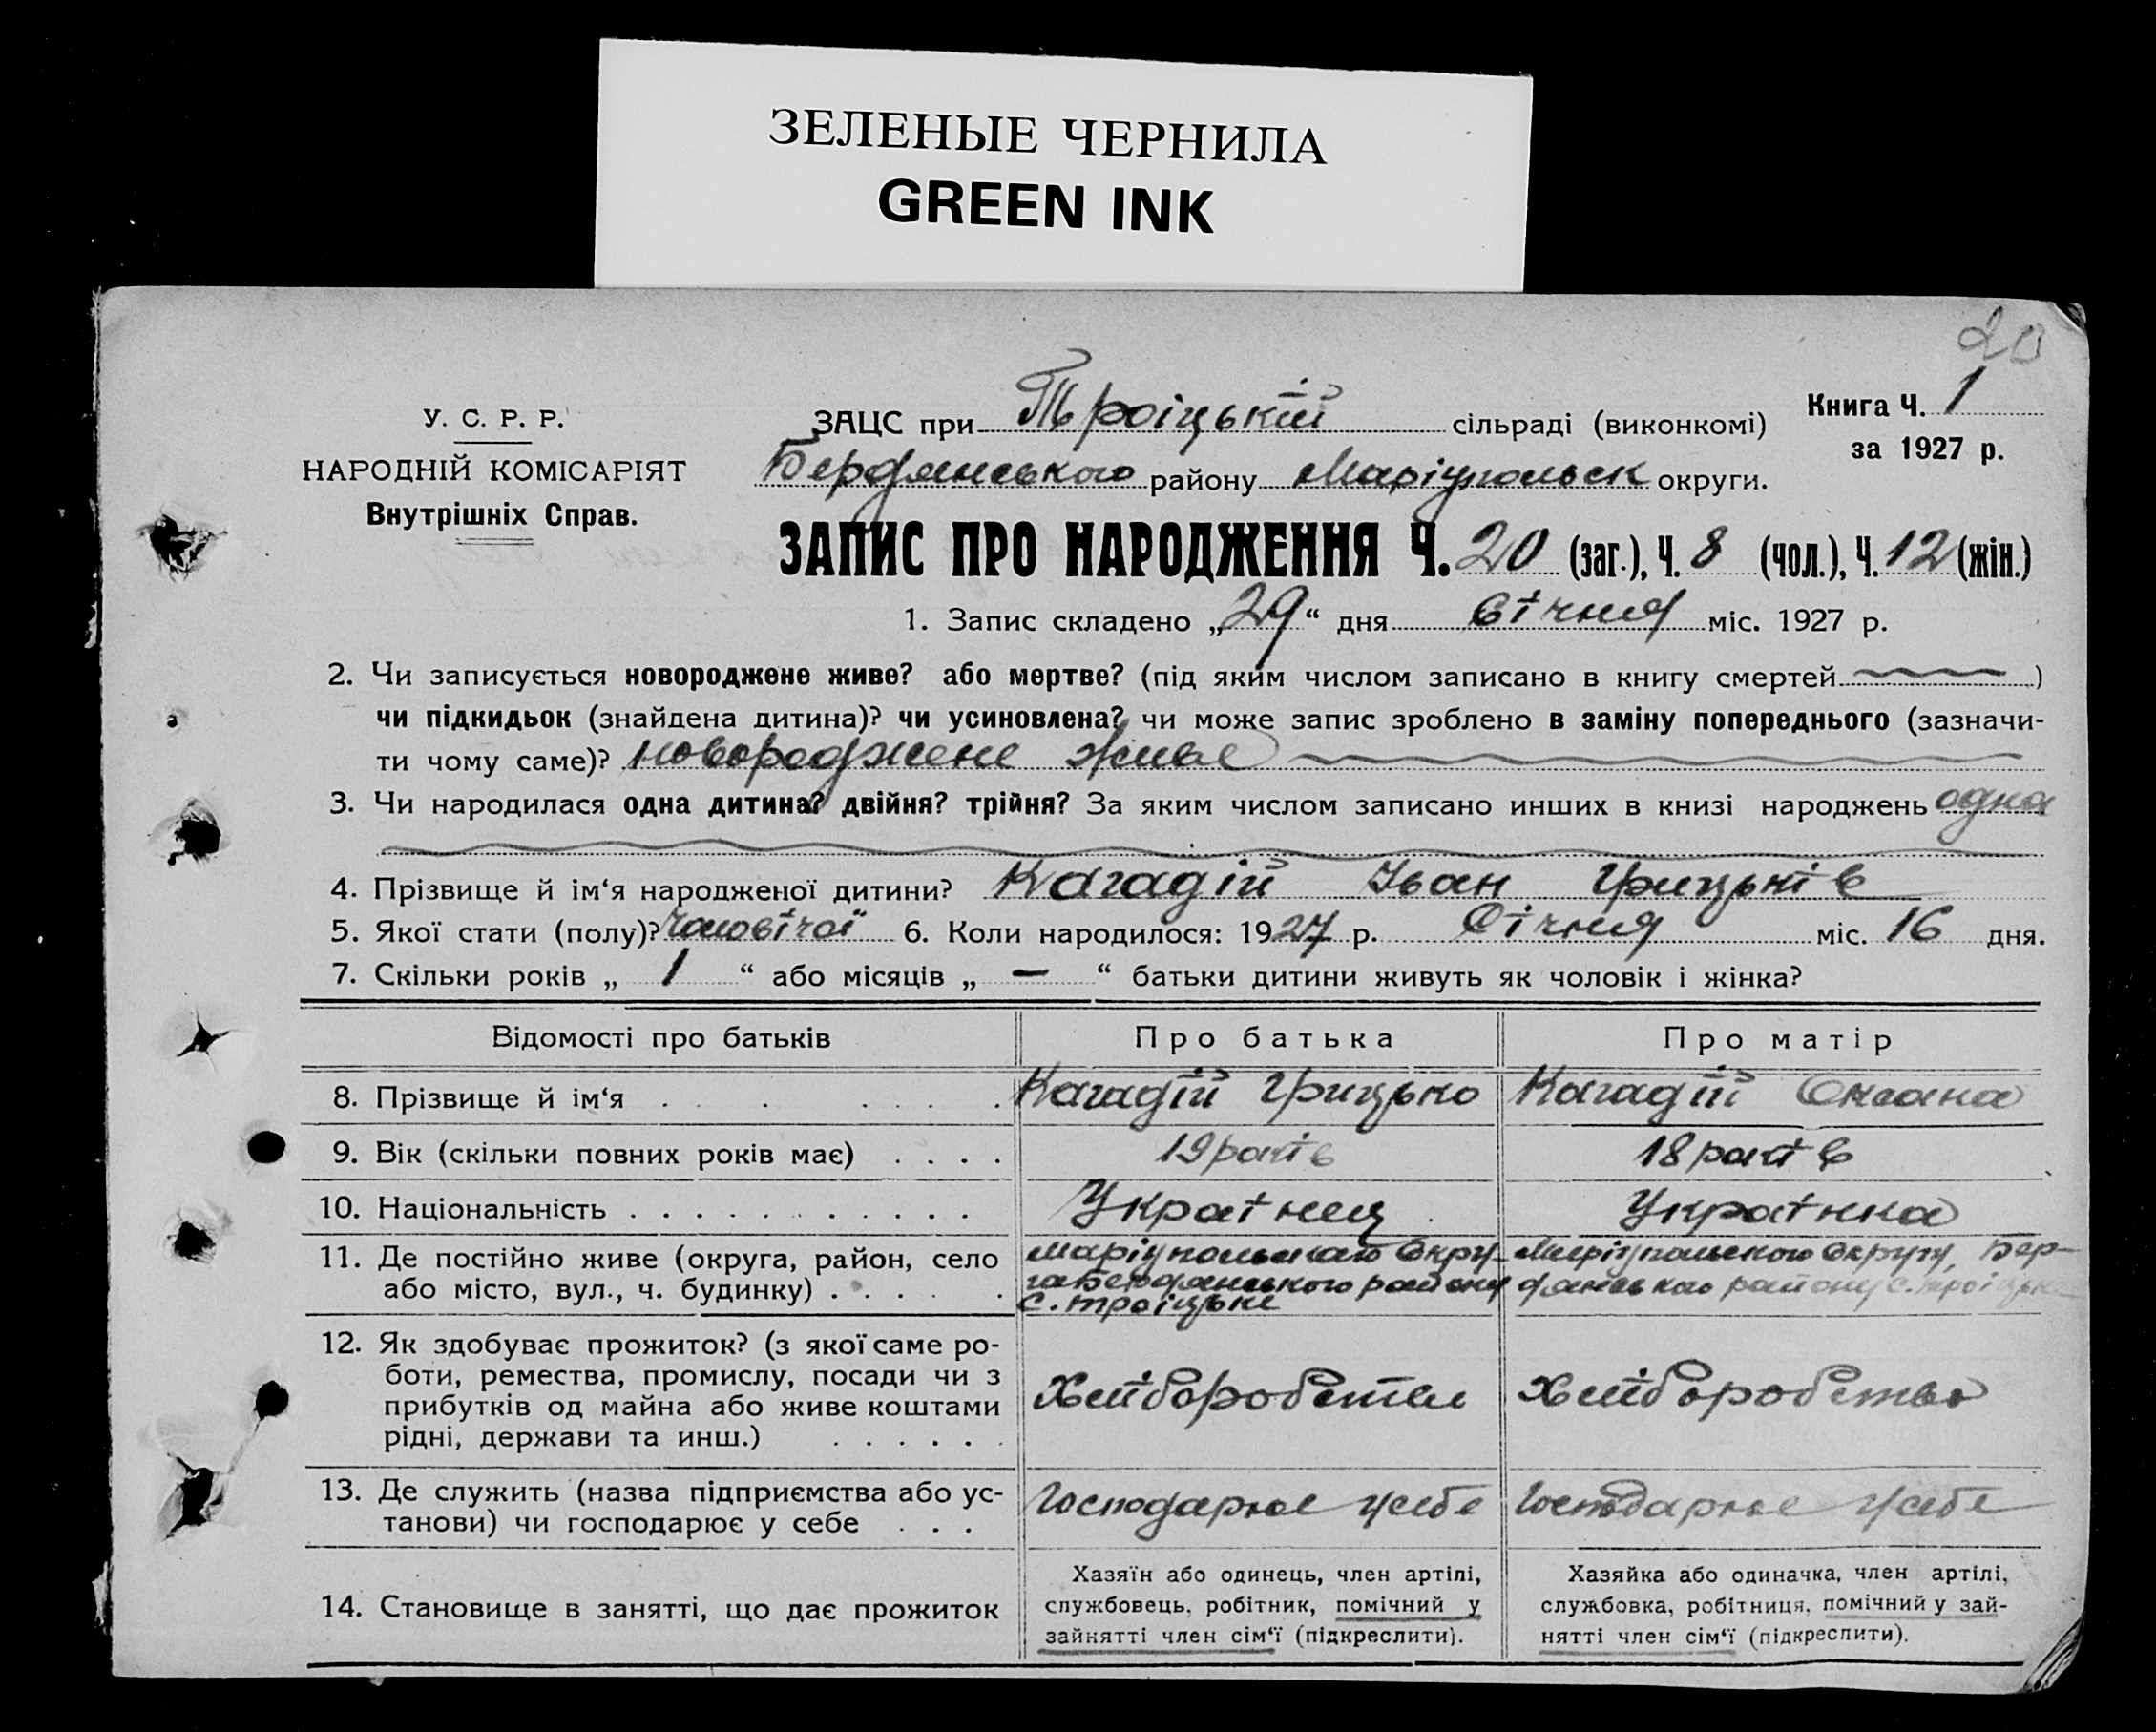 ЗЕЛЕНЫЕ ЧЕРНИЛА
GREEN INK
20
У. С. Р. Р.
НАРОДНІЙ КОМІСАРІЯТ
Внутрішніх Справ.
ЗАЦС при Троіцькій сільраді (виконкомі)
Бердянського району Маріупольськ округи.
Книга Ч. 1
за 1927 р.
ЗАПИС ПРО НАРОДЖЕННЯ Ч. 20 (заг.), Ч. 8 (чол.), Ч. 12 (жін.)
1. Запис складено „29“ дня Січня міс. 1927 р.
2. Чи записується новороджене живе? або мертве? (під яким числом записано в книгу смертей )
чи підкидьок (знайдена дитина)? чи усиновлена? чи може запис зроблено в заміну попереднього (зазначи-
ти чому саме)? новороджене живе
3. Чи народилася одна дитина? двійня? трійня? За яким числом записано инших в книзі народжень одна
4. Прізвище й ім‘я народженої дитини? Кагадій Іван Грицьків
5. Якої стати (полу)? чоловічої 6. Коли народилося: 1927 р. Січня міс. 16 дня.
7. Скільки років „ 1 “ або місяців „ — “ батьки дитини живуть як чоловік і жінка?
Відомості про батьків Про батька Про матір
8. Прізвище й ім‘я . . . . . . . Кагадій Грицько Кагадій Оксана
9. Вік (скільки повних років має) . . . . 19 років 18 років
10. Національність . . . . . . . . . . . . Українец Українка
11. Де постійно живе (округа, район, село
або місто, вул., ч. будинку) . . . . .
Бердянського району
с. Троіцьке
Маріупольского округу, Бер-
дянського району с. Троіцьке
12. Як здобуває прожиток? (з якої саме ро-
боти, ремества, промислу, посади чи з
прибутків од майна або живе коштами
рідні, держави та инш.) . . . . . .
Хліборобством Хліборобство
13. Де служить (назва підприємства або ус-
танови) чи господарює у себе . . .
Господарює у себе Господарює у себе
14. Становище в занятті, що дає прожиток
Хазяїн або одинець, член артілі,
службовець, робітник, помічний у
зайнятті член сім‘ї (підкреслити).
Хазяйка або одиначка, член артілі,
службовка, робітниця, помічний у зай-
нятті член сім‘ї (підкреслити).